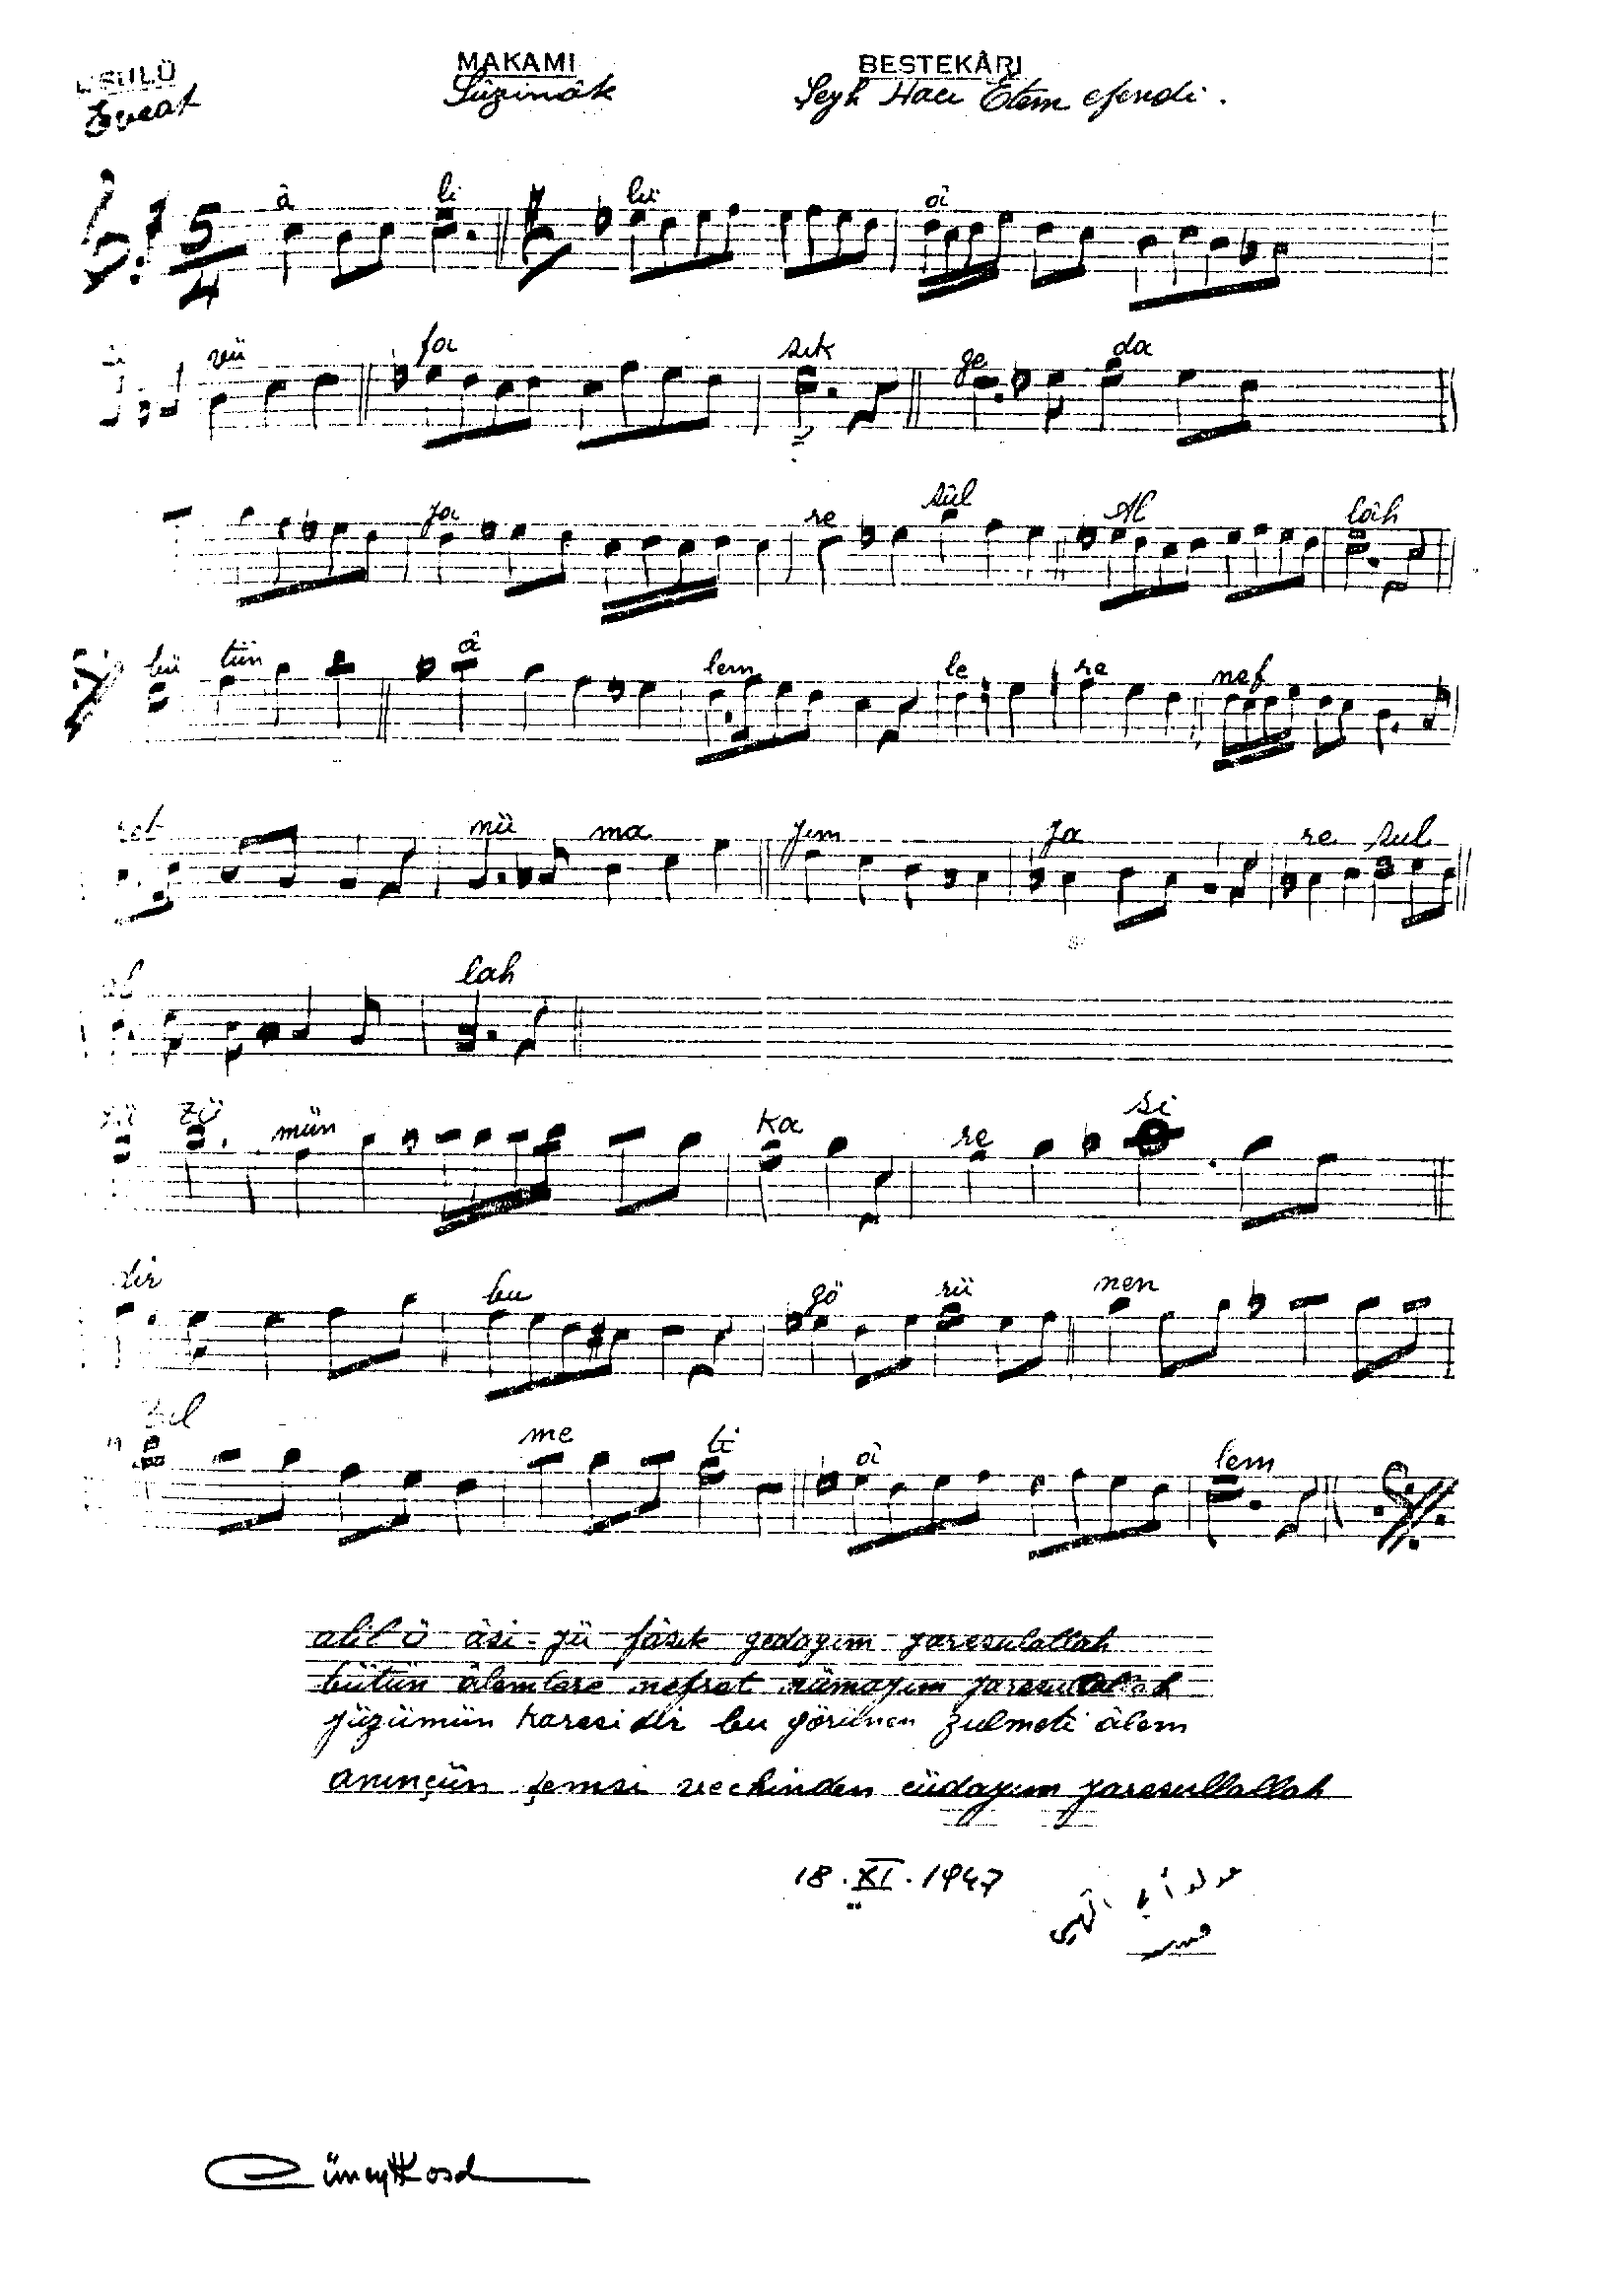 USULÜ MAKAMI BESTEKÂRI
Evcat Sûzinâk Şeyh Hacı Etem efendi.
5 4 â li lü â
vü fa sık ge da
ya re sûl Al lâh
bü tün â lem le re nef
ret nü ma yım ya re sul
al lah
yü zü mün ka re si
dir bu gö rü nen
zul me ti â lem
alil ü âsi-yü fâsık gedayım yaresulallah
bütün âlemlere nefret nümayım yaresulallah
yüzümün karesidir bu görünen zulmeti âlem
anınçün şemsi vechinden cüdayım yaresullallah
18.XI.1947
Cüneyt Kosal